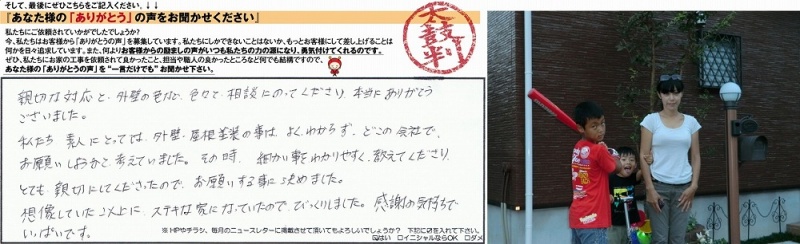 そして、最後にぜひこちらをご記入ください。↓↓
『あなた様の「ありがとう」の声をお聞かせください』
私たちにご依頼されていかがでしたでしょうか?
今、私たちはお客様から「ありがとうの声」を募集しています。私たちにしかできないことはないか、もっとお客様にして差し上げることは
何かを日々追求しています。また、何よりお客様からの励ましの声がいつも私たちの力の源になり、勇気付けてくれるのです。
ぜひ、私たちにお家の工事を依頼されて良かったこと、担当や職人の良かったところなど何でも結構ですので、
あなた様の「ありがとうの声」を“一言だけでも”お聞かせ下さい。
太鼓判
親切な対応と、外壁の色など、色々と相談にのってくださり、本当にありがとう
ございました。
私たち素人にとっては、外壁・屋根塗装の事は、よくわからず、どこの会社で、
お願いしようかと考えていました。その時、細かい事をわかりやすく、教えてくださり
とても親切にしてくださったので、お願いする事に決めました。
想像していた以上に、ステキな家になっていたのでびっくりしました。感謝の気持ちで
いっぱいです。
※HPやチラシ、毎月のニュースレターに掲載させて頂いてもよろしいでしょうか? 下記に☑を入れて下さい。
☑はい □イニシャルならOK □ダメ